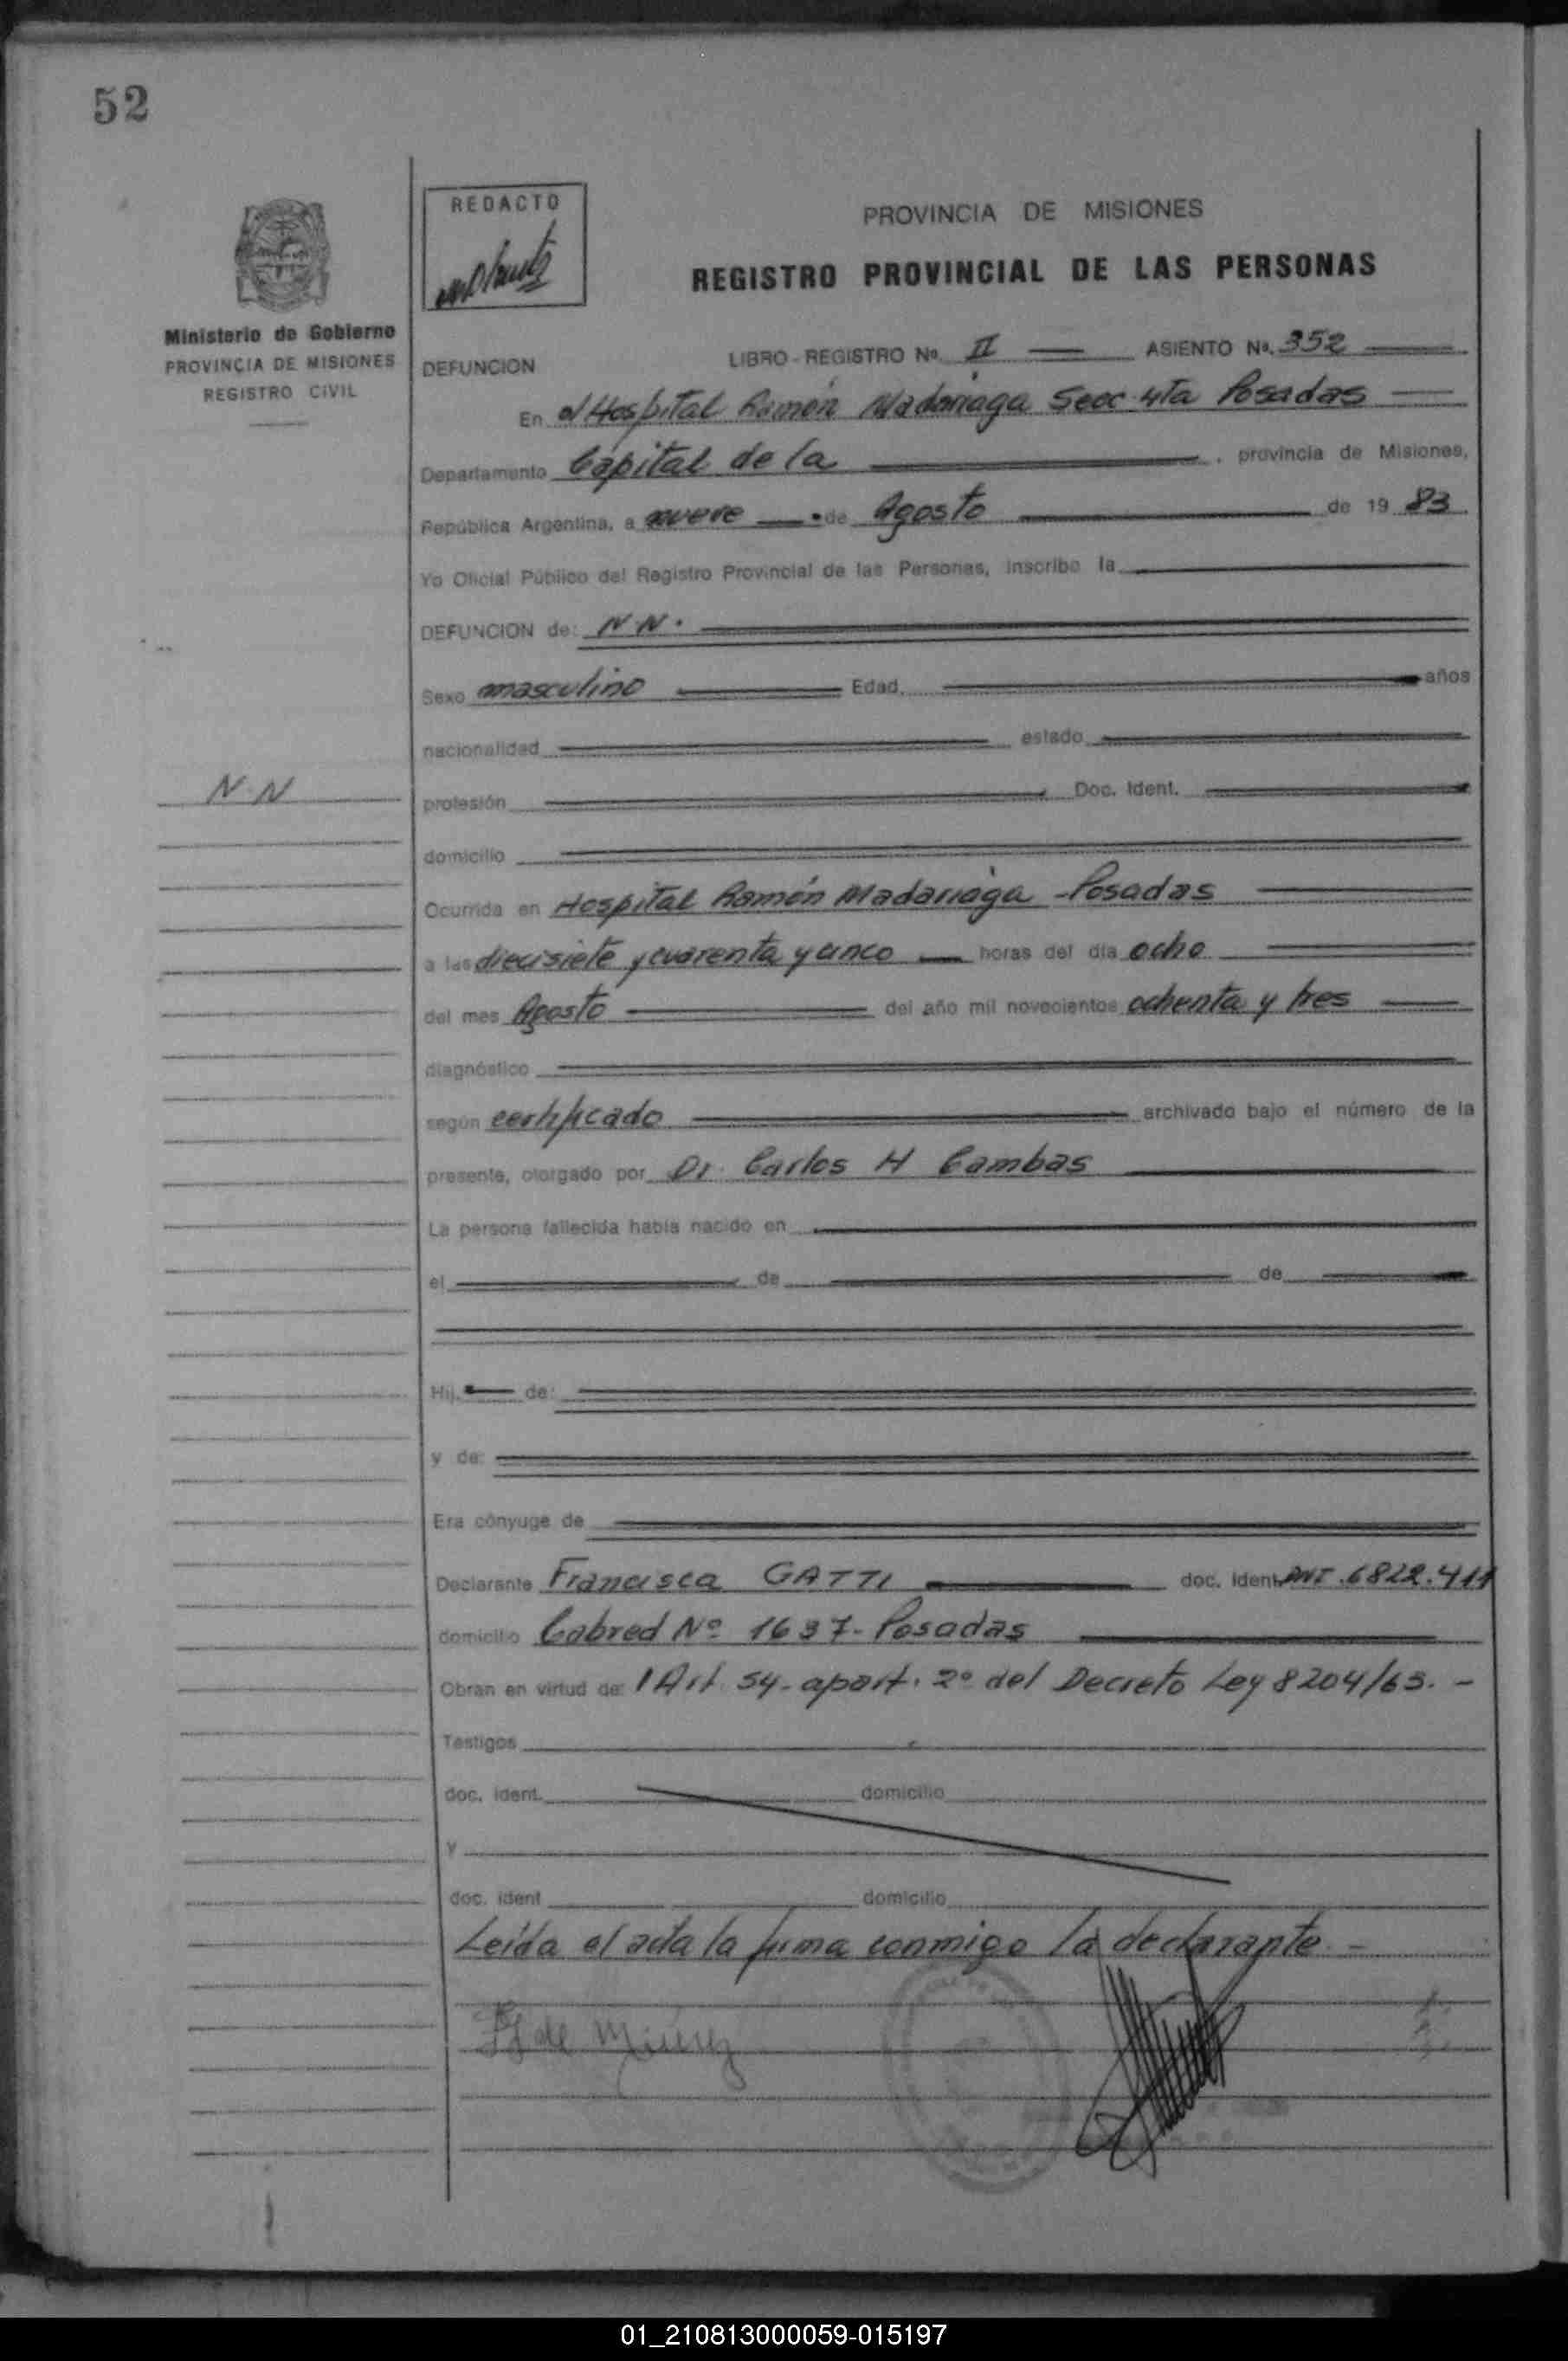 52
REDACTO
PROVINCIA DE MISIONES
REGISTRO PROVINCIAL DE LAS PERSONAS
Ministerio de Gobierno
PROVINCIA DE MISIONES
REGISTRO CIVIL
DEFUNCION LIBRO - REGISTRO No. II ASIENTO No. 352
En el Hospital Ramón Madariaga Secc 4ta Posadas
Departamento Capital de la , provincia de Misiones,
República Argentina, a nueve de Agosto de 19 83
Yo Oficial Público del Registro Provincial de las Personas, inscribo la
DEFUNCION de: N.N.
Sexo masculino Edad. años
nacionalidad estado
N.N
profesión Doc. Ident.
domicilio
Ocurrida en Hospital Ramón Madariaga - Posadas
a las diecisiete y cuarenta y cinco horas del día ocho
del mes Agosto del año mil novecientos ochenta y tres
diagnóstico
según certificado archivado bajo el número de la
presente, otorgado por Dr. Carlos H Cambas
La persona fallecida había nacido en
el de de
Hij de:
y de:
Era cónyuge de
Declarante Francisca GATTI doc. Ident. DNI. 6822.411
domicilio Cabred Nº 1637- Posadas
Obran en virtud de: l Art. 54- apart. 2º del Decreto Ley 8204/63. -
Testigos
doc. ident. domicilio
y
doc. ident domicilio
Leída el acta la firma conmigo la declarante -
01_210813000059-015197